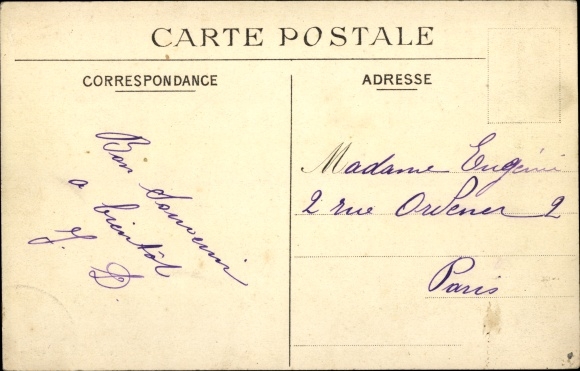 CARTE POSTALE
CORRESPONDANCE
Bon Souvenir
a bientôt
J. D.
ADRESSE
Madame Eugénie
2 rue Ordener 2
Paris